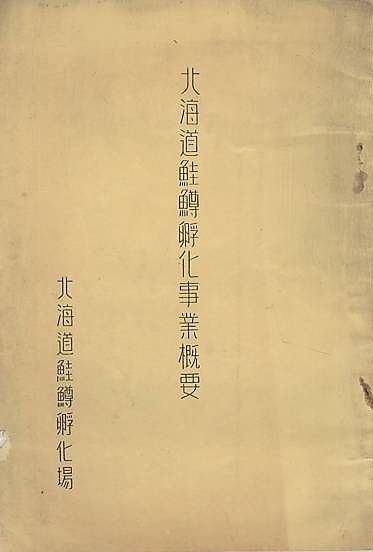 北海道鮭鱒孵化事業概要
北海道鮭鱒孵化場